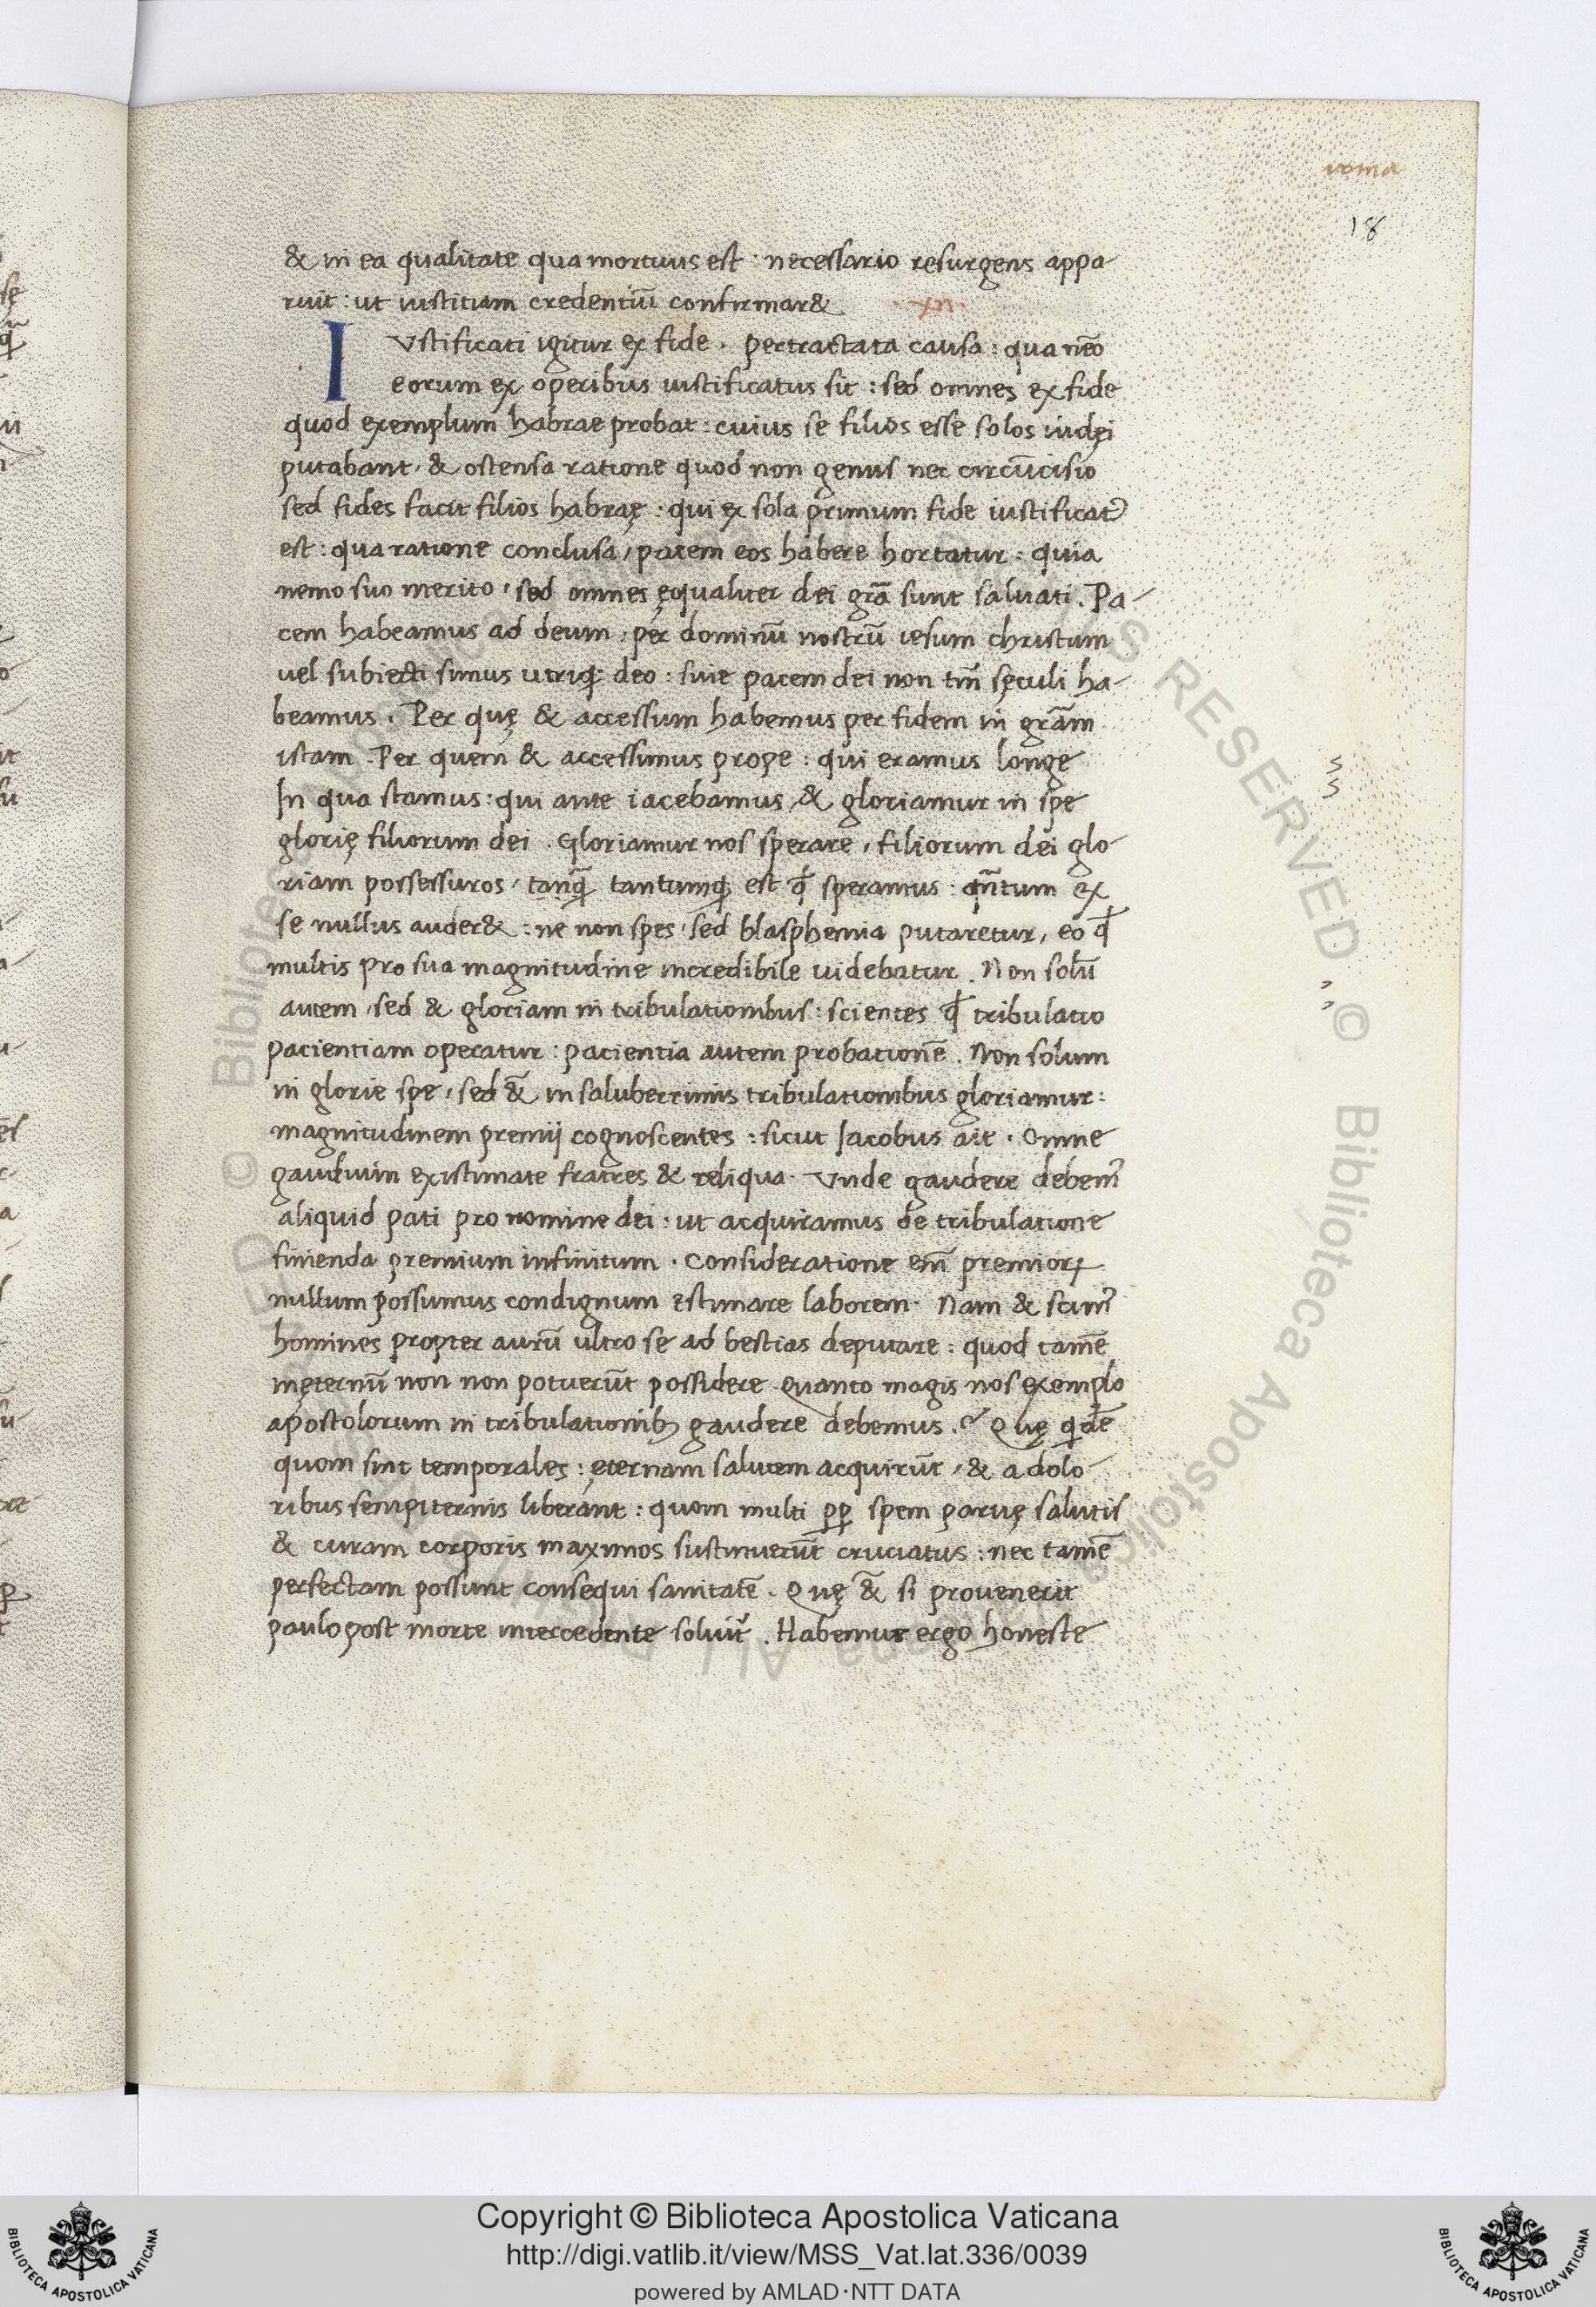 roma
18
& in ea qualitate qua mortuus est : necessario resurgens appa
ruit : ut iustitiam credentiū confirmar&
·xii·
I Vstificati igitur ex fide . pertractata causa : qua nēo
eorum ex operibus iustificatus sit : sed omnes ex fide
quod exemplum habrae probat : cuius se filios esse solos iudęi
putabant , & ostensa ratione quod non genus nec circūcisio
sed fides facit filios habrae : qui ex sola primum fide iustificat⁹
est : qua ratione conclusa , pacem eos habere hortatur : quia
nemo suo merito , sed omnes ęqualiter dei grā sunt saluati . Pa-
cem habeamus ad deum , per dominū nostrū iesum christum
uel subiecti simus utriq; deo : siue pacem dei non tm̄ sęculi ha-
beamus . Per quę & accessum habemus per fidem in grām
istam . Per quem & accessimus prope : qui eramus longe
In qua stamus : qui ante iacebamus , & gloriamur in spe
glorię filiorum dei . Gloriamur nos sperare , filiorum dei glo-
riam possessuros , tanq̄ tantumq; est qđ speramus : qn̄tum ex
se nullus auder& : ne non spes , sed blasphemia putaretur , eo qđ
multis pro sua magnitudine incredibile uidebatur . Non solū
autem , sed & gloriam in tribulationibus : scientes qđ tribulatio
pacientiam operatur : pacientia autem probationē . Non solum
in glorie spe , sed &̄ in saluberrimis tribulationibus gloriamur :
magnitudinem premij cognoscentes : sicut Iacobus ait . Omne
gaudium existimate fratres & reliqua . Vnde gaudere debem⁹
aliquid pati pro nomine dei : ut acquiramus de tribulatione
finienda premium infinitum . Consideratione em̄ premioꝝ
nullum possumus condignum estimare laborem . Nam & scim⁹
homines propter aurū ultro se ad bestias deputare : quod tamē
inęternū non non potuerūt possidere . Quanto magis nos exemplo
apostolorum in tribulationib; gaudere debemus . Quę qidē
quom sint temporales : ęternam salutem acquirūt , & a dolo-
ribus sempiternis liberant : quom multi ꝓꝑ spem paruę salutis
& curam corporis maximos sustinuerūt cruciatus : nec tamē
perfectam possunt consequi sanitatē . Quę &̄ si prouenerit
paulo post morte intercedente soluit᷑ . Habemus ergo honeste
Copyright © Biblioteca Apostolica Vaticana
http://digi.vatlib.it/view/MSS_Vat.lat.336/0039
powered by AMLAD·NTT DATA